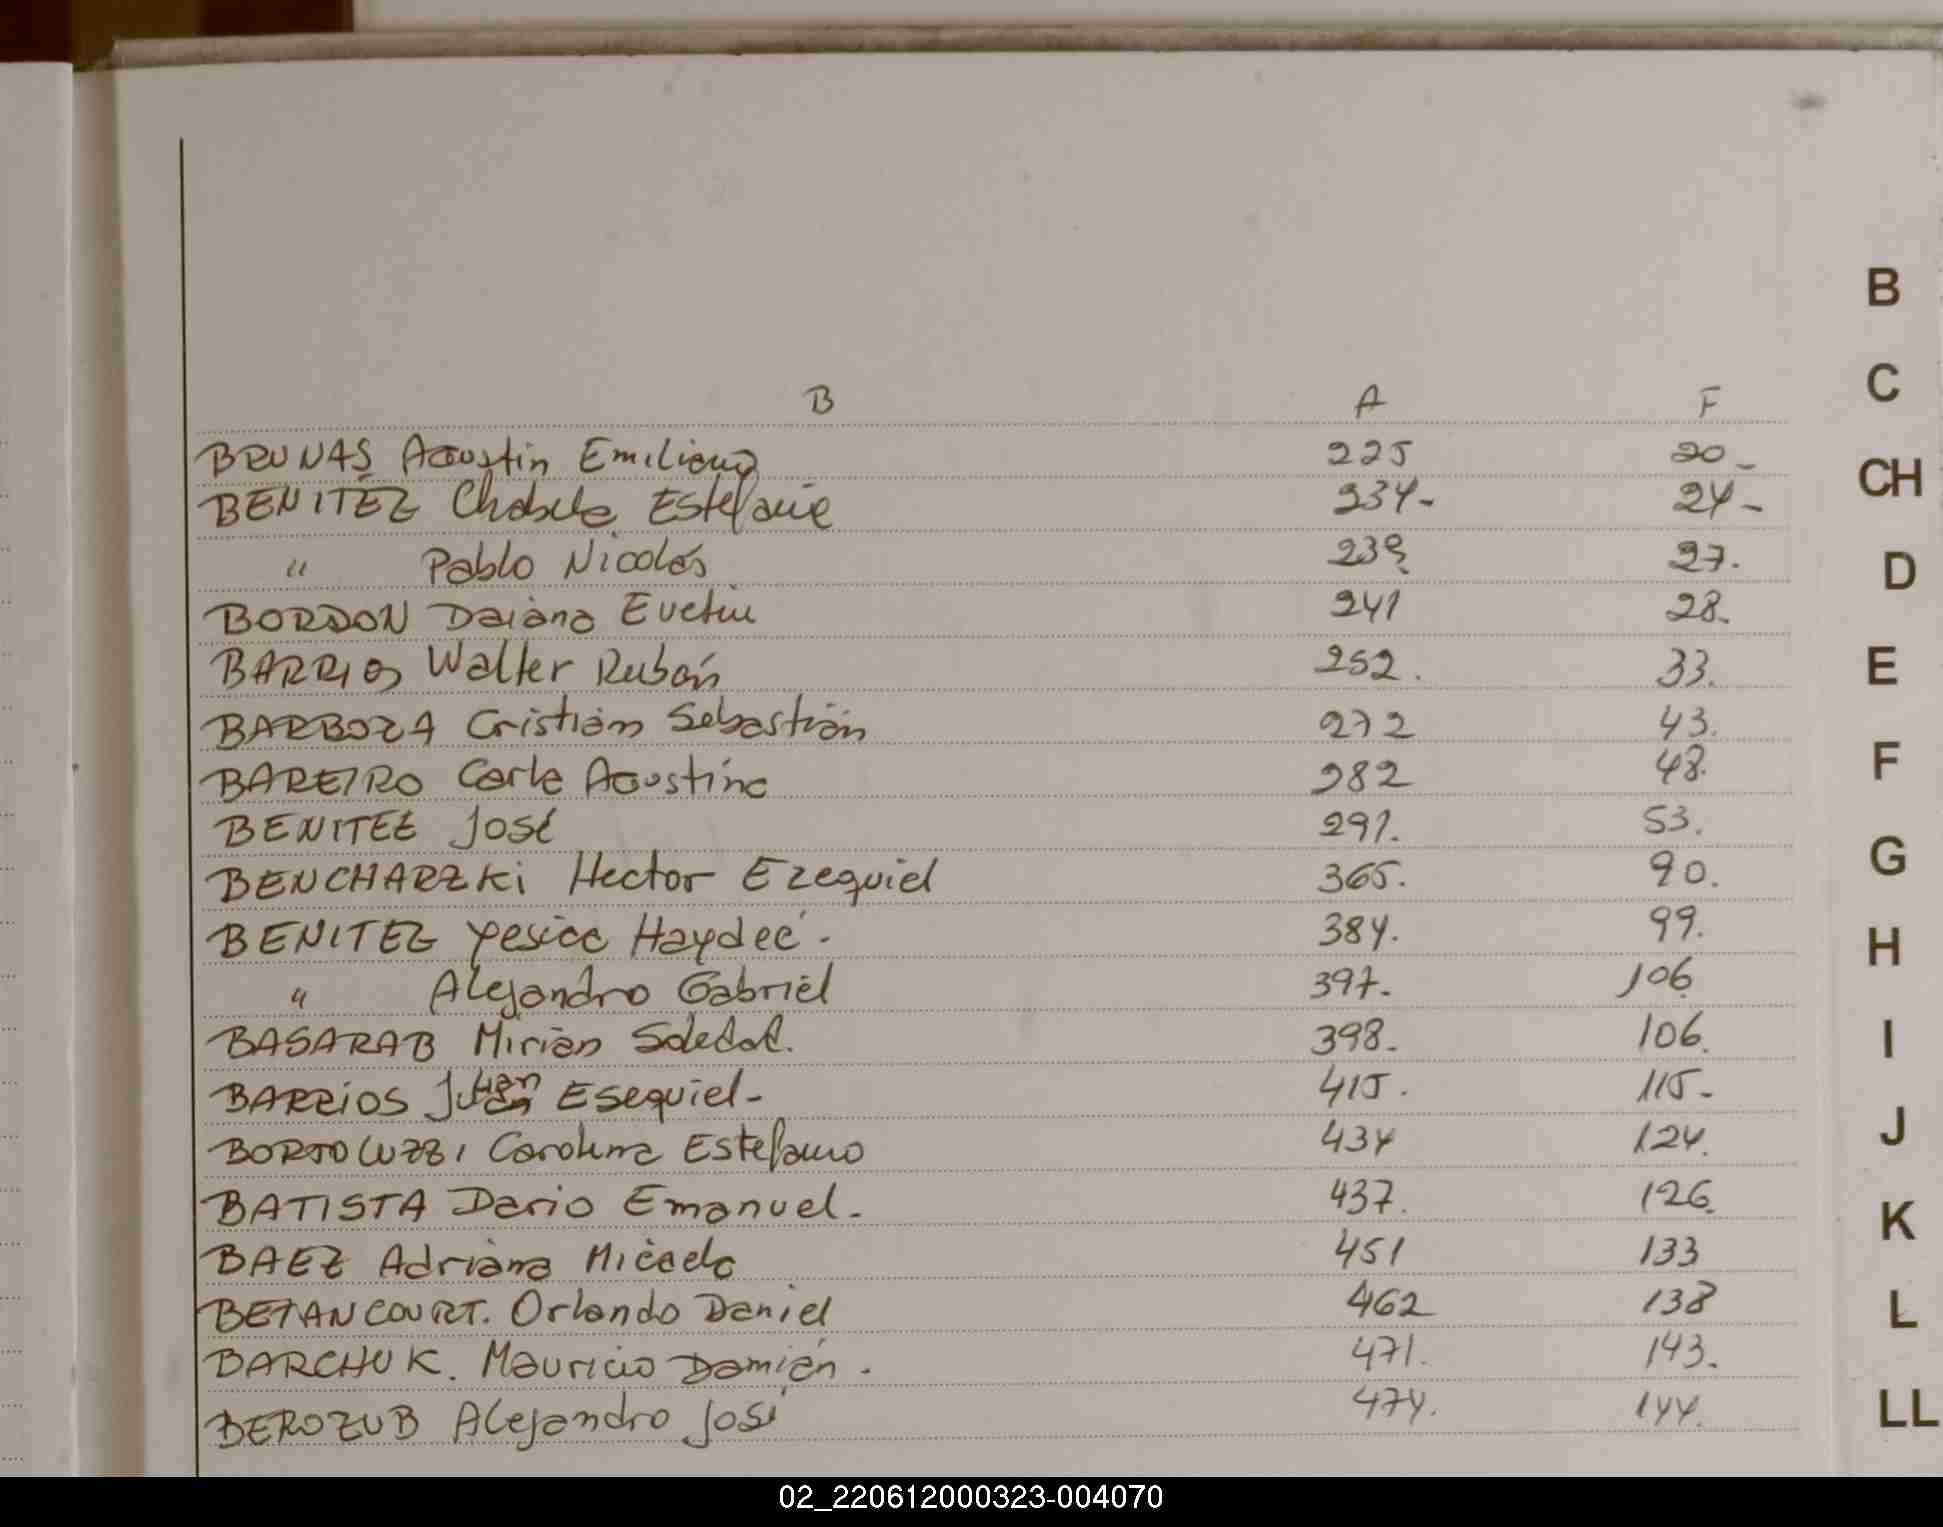 B A F
BRUNAS Agustin Emiliano 225 20-
BENITEZ Chabela Estefanie 234- 24-
" Pablo Nicolás 239 27.
BORDON Daiana Evelin 241 28.
BARRIOS Walter Rubén 252. 33.
BARBOZA Cristián Sebastián 272 43.
BAREIRO Carla Agustina 282 48.
BENITEZ José 291. 53.
BENCHARZKi Hector Ezequiel 365. 90.
BENITEZ Yesica Haydeé. 384. 99.
" Alejandro Gabriel 397. 106
BASARAB Mirian Soledad. 398. 106.
BARRIOS Julian Esequiel- 415. 115-
BORTOLUZZI Carolina Estefania 434 124.
BATISTA Dario Emanuel. 437. 126.
BAEZ Adriana Micaela 451 133
BETANCOURT. Orlando Daniel 462 138
BARCHUK. Mauricio Damián. 471. 143.
BEROZUB Alejandro José 474. 144.
B
C
CH
D
E
F
G
H
I
J
K
L
LL
02_220612000323-004070